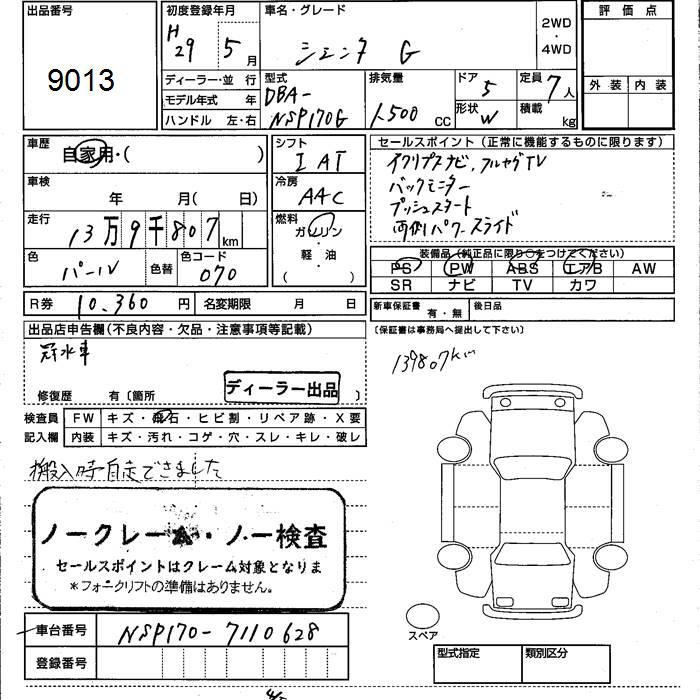 出品番号
9013
初度登録年月
H
29 5月
車名・グレード
シエンタ G
2WD
・
4WD
評価点
外装 内装
ディーラー・並行
モデル年式 年
ハンドル 左・右
型式
DBA-
NSP170G
排気量
1,500 CC
ドア 5
形状 W
定員 7人
積載 kg
車歴
自家用・( )
車検
年 月( 日)
走行
13万9千807km
色
パール 色替
色コード
070
シフト
I AT
冷房
AAC
燃料
ガソリン
・軽油
( )
セールスポイント(正常に機能するものに限ります)
イクリプスナビ,フルセグTV
バックモニター
プッシュスタート
両側パワースライド
装備品(純正品に限り○をつけてください)
PS PW ABS エアB AW
SR ナビ TV カワ
R券 10,360円 名変期限 月 日
新車保証書 有・無 後日品
(保証書は事務局へ提出して下さい)
出品店申告欄(不良内容・欠品・注意事項等記載)
冠水車
修復歴 有〔箇所 〕
ディーラー出品
139807km
検査員 FW キズ・飛石・ヒビ割・リペア跡・X要
記入欄 内装 キズ・汚れ・コゲ・穴・スレ・キレ・破レ
搬入時自走できました
ノークレーム・ノー検査
セールスポイントはクレーム対象となりま
*フォークリフトの準備はありません。
車台番号 NSP170-7110628
登録番号
スペア
型式指定 類別区分